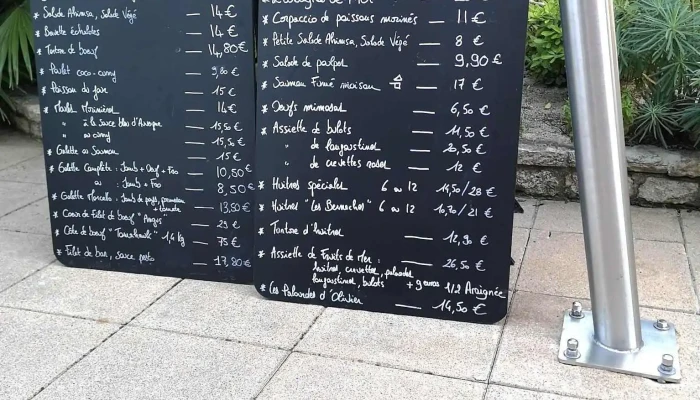 * Salade Ahimsa, Salade Végé — 14 €
* Bavette échalotes — 14 €
* Tartare de bœuf — 14,80 €
* Poulet coco-curry — 9,80 €
* Poisson du jour — 15 €
* Moules Marinières — 14 €
" à la sauce bleu d'Auvergne — 15,50 €
" au curry — 15,50 €
* Galette au Saumon — 15 €
* Galette Complète : Jamb + Oeuf + Fro — 10,50 €
ou : Jamb + Fro — 8,50 €
* Galette Marcello : Jamb de pays, parmesan + tomate — 13,50 €
* Cœur de Filet de bœuf "Angus" — 25 €
* Côte de bœuf "Tomahawk" 1,4 kg — 75 €
* Filet de bar, sauce pesto — 17,80 €
* Carpaccio de poissons marinés — 11 €
* Petite Salade Ahimsa, Salade Végé — 8 €
* Salade de poulpe — 9,90 €
* Saumon Fumé maison — 17 €
* Oeufs mimosa — 6,50 €
* Assiette de bulots — 11,50 €
" de langoustines — 20,50 €
" de crevettes roses — 12 €
* Huîtres spéciales 6 ou 12 14,50 / 28 €
* Huîtres "Les Bernaches" 6 ou 12 10,70 / 21 €
* Tartare d'huîtres — 12,90 €
* Assiette de Fruits de Mer : — 26,50 €
huîtres, crevettes, palourdes
langoustines, bulots + 9 euros 1/2 Araignée
* Les Palourdes d'Olivier — 14,50 €